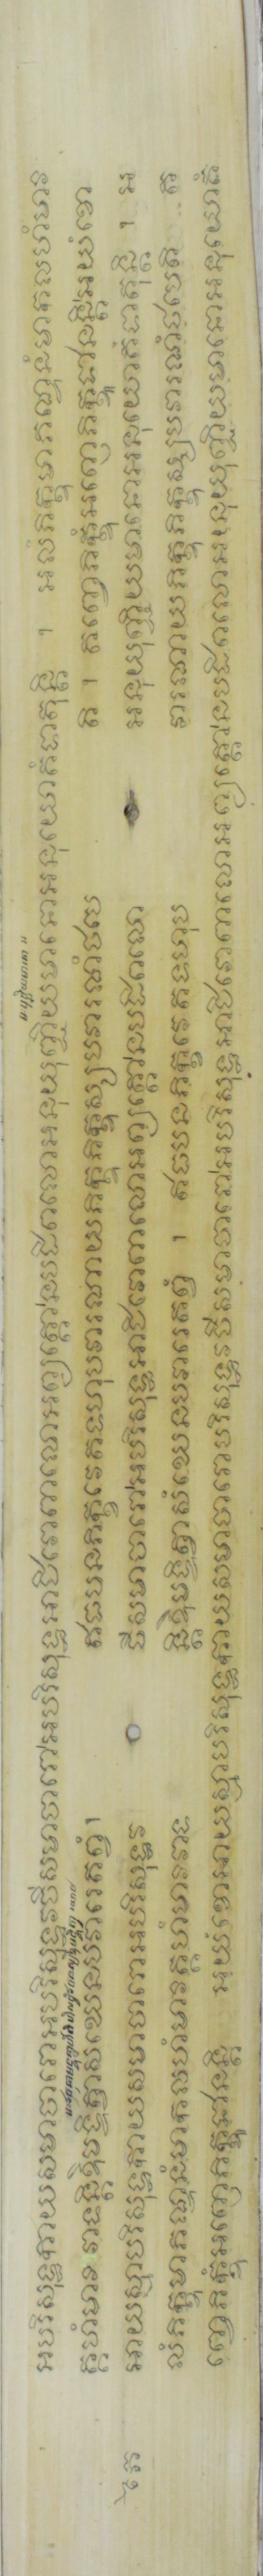 អបរិសុទ្ធកាយសមាចារោអបរិសុទ្ធវចីសមាចារោអបរិសុទ្ធអាជីវោពាលោអព្យត្តោនបដិពលោអនុយុញ្ជិយមានោអនុយោគំទាតុន្តិ ។ អលំភិក្ខុមាភណ្ឌនំមាកលហំមាវ
គ្គហំមាវ វាទន្តិឱមទ្ទិត្វាសំឃេនបវារេតព្វំ។ ឥធបនភិក្ខវេតទហុបវារណាយភិក្ខុភិក្ខុស្សបវារណំថបេ តិ ។ តញ្ចេភិក្ខុំអញ្ញេភិក្ខូជានន្តិអយំខោ
អាយស្មាបរិសុទ្ធកាយសមាចារោអបរិសុទ្ធវ ចីសមាចារោអបរិសុទ្ធអាជីវោពាលោអព្យត្តោនបដិពលោ អនុយុញ្ជិយមានោអនុយោគំទាតុន្តិ ។ អ
លំភិក្ខុមាភណ្ឌនំមាកលហំមាវគ្គហំមាវវាទ ន្តិឱមទ្ទិត្វាសំឃេនបវារេតព្វំ ។ ឥធបនភិក្ខវេតទហុប វារណាយភិក្ខុភិក្ខុស្សបវារណំថបេតិ ត
ញ្ចេភិក្ខុំអញ្ញេភិក្ខូជានន្តិ អយំខោអាយស្មាបរិសុទ្ធកាយសមាចារោបរិសុទ្ធវចីសមាចារោអបរិសុទ្ធអាជីវោពាលោអព្យត្តោនបដិពលោអនុយុញ្ជិយមានោអនុយោគំ